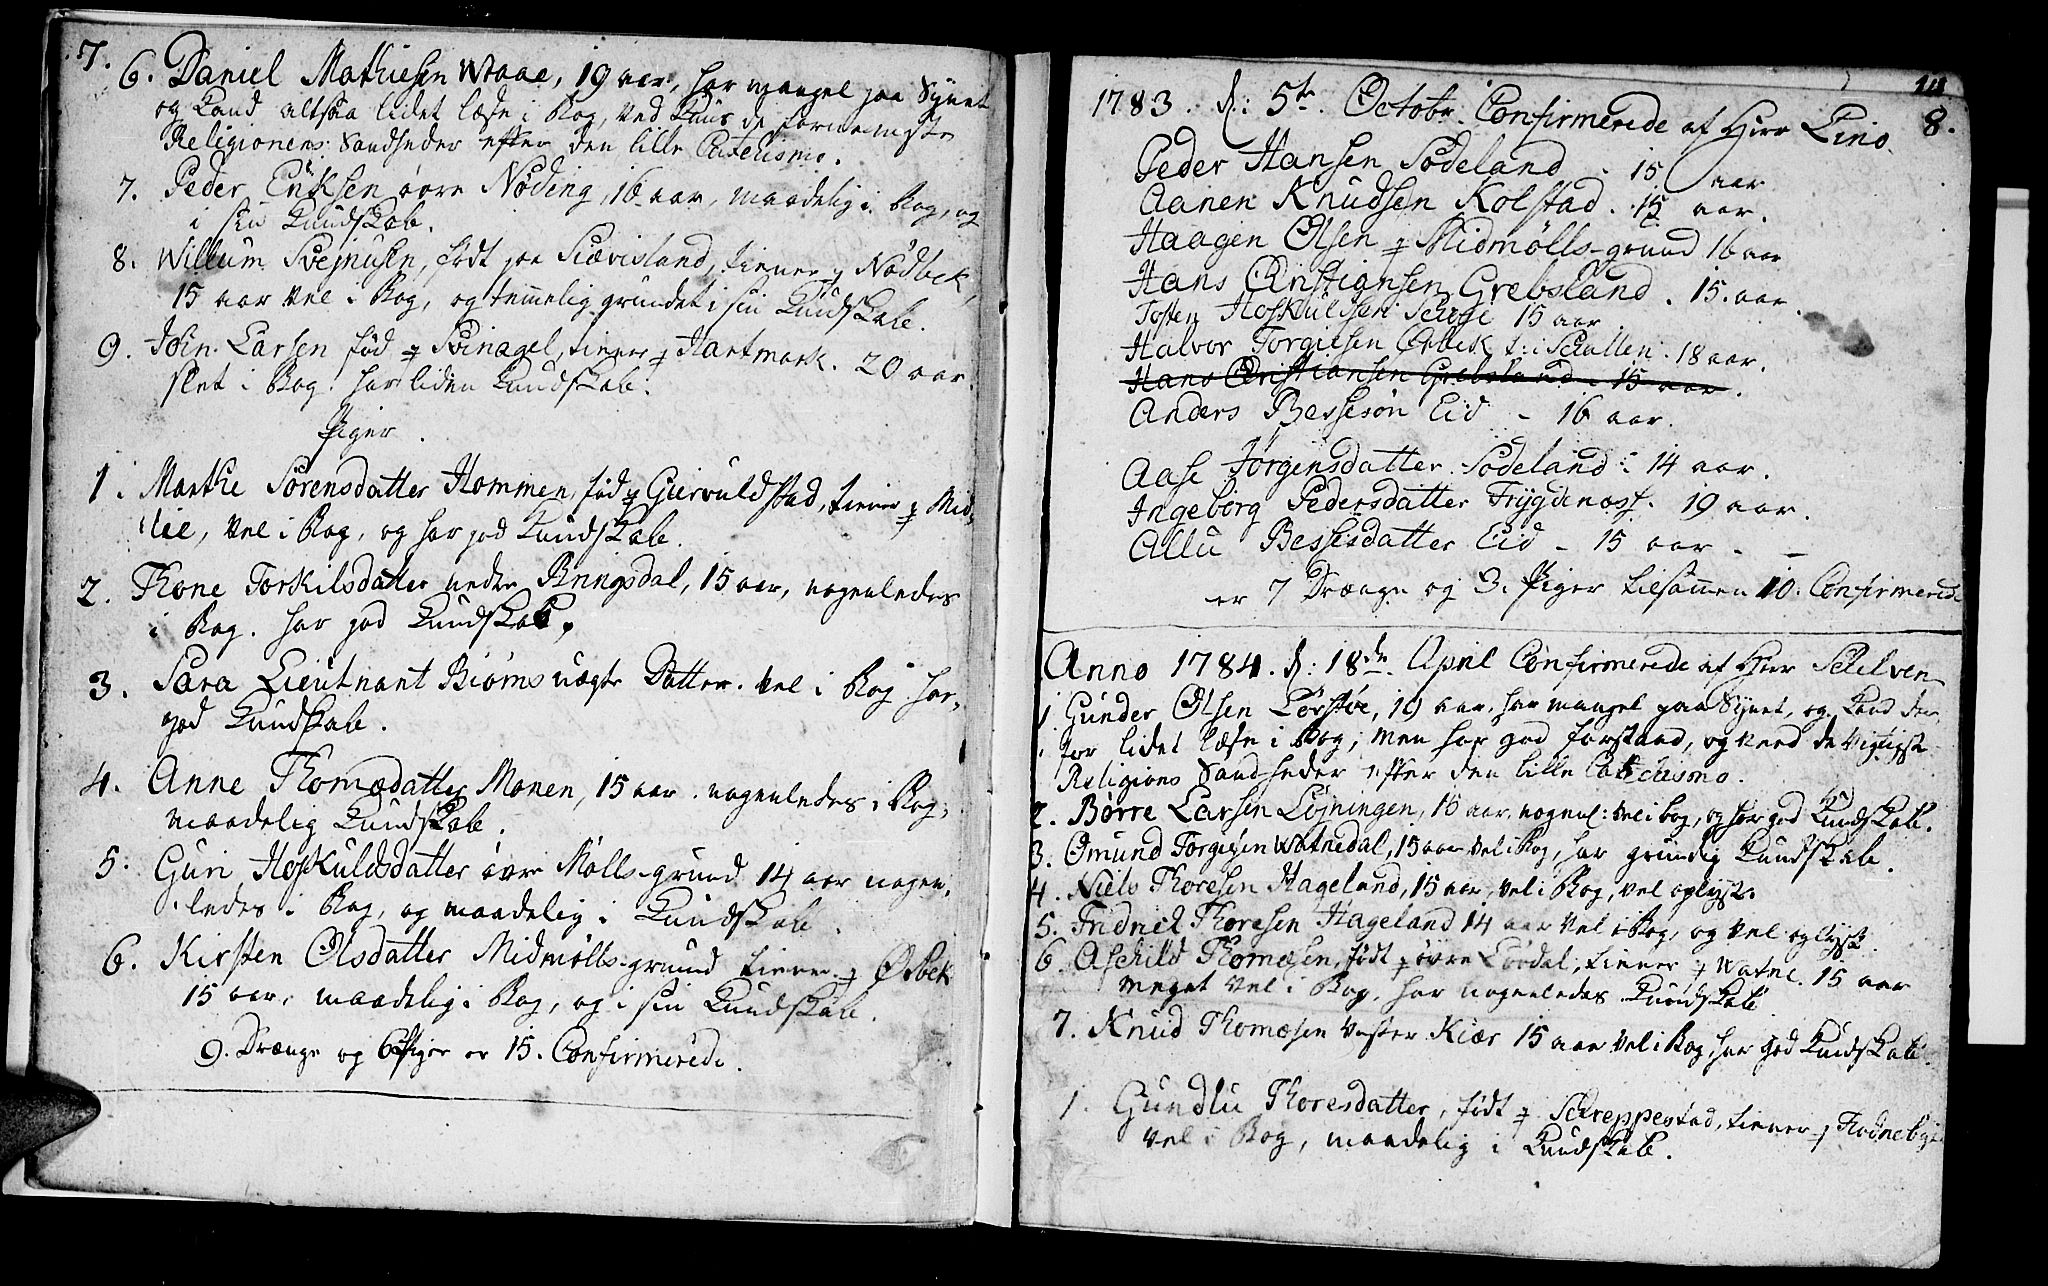 7.
6. Daniel Mathiesen Waae, 19 aar, har mangel paa Synet
og kand altsaa lidet læse i Bog, ved kuns de fornemste
Religionens Sandheder efter den lille Catechismo.
7. Peder Eriksen øvre Nøding, 16 aar, maadelig i Bog, og
i sin Kundskab.
8. Willum Svejnusen, født paa Skævisland, tiener p Nødbek,
15 aar vel i Bog, og temmelig grundet i sin Kundskab.
9. Larsen fød p Svinagel, tiener p Hartmark. 20 aar.
slet i Bog. har liden Kundskab.
Piger.
1. Marthe Sørensdatter Hommen, fød p Giervuldstad, tiener p Mid-
lie, vel i Bog, og har god Kundskab.
2. Thone Torkilsdatter nedre Bringsdal, 15 aar, nogenledes
i Bog. har god Kundskab.
3. Sara Lieutnant Biørns uægte Datter. vel i Bog har
god Kundskab.
4. Anne Thomædatter Monen, 15 aar. nogenledes i Bog,
maadelig Kundskab.
5. Guri Hoskuldsdatter øvre Mølls-grund 14 aar nogen-
ledes i Bog, og maadelig i Kundskab.
6. Kirsten Olsdatter Midmølls-grund tiener p Øsbek
15 aar, maadelig i Bog, og i sin Kundskab.
9. Drænge og 6 Piger er 15. Confirmerede.
8.
1783. d: 5te. Octobr. Confirmerede af Herr Lind.
Peder Hansen Sødeland - 15 aar
Aanen Knudsen Kolstad. 15 aar.
Haagen Olsen p Midmølls-grund 16 aar
Hans Christiansen Grebsland. 15. aar.
Tosten Hoskuldsen 15 aar
Halvor Torgiesen Øsbek t: i Skallen. 18 aar.
Hans Christiansen Grebsland 15 aar.
Anders Bessesøn Eid - 16 aar.
Aase Jørgensdatter Sødeland - 14 aar.
Ingeborg Pedersdatter Trygdenæss. 19 aar.
Allu Bessesdatter Eid - 15 aar - -
er 7 Drænge og 3. Piger tilsammen 10. Confirmerede
Anno 1784. d: 18de April Confirmerede af Herr
1 Gunder Olsen 19 aar, har mangel paa Synet, og kand der
for lidet læse i Bog, men har god forstand, og veed de vigtigste
Religions Sandheder efter den lille Catechismo.
2. Børre Larsen Løjningen, 16 aar. nogenl: vel i bog, og har god Kundskab.
3. Omund Torgiesen Watnedal, 15 aar vel i Bog, har grundig Kundskab.
4. Niels Thoresen Hageland, 15 aar, vel i Bog, vel oplyst.
5. Fridrick Thoresen Hageland 14 aar vel i Bog, og vel oplyst.
6 Aschild Thomæsen, født p øvre tiener p Watne. 15 aar
meget vel i Bog, har nogenledes Kundskab.
7. Knud Thomæsen Vester Kiær 15 aar vel i Bog, har god Kundskab.
1. Gundlu Thoresdatter, født p Schreppestad, tiener p Fodnebye
vel i Bog, maadelig i Kundskab.